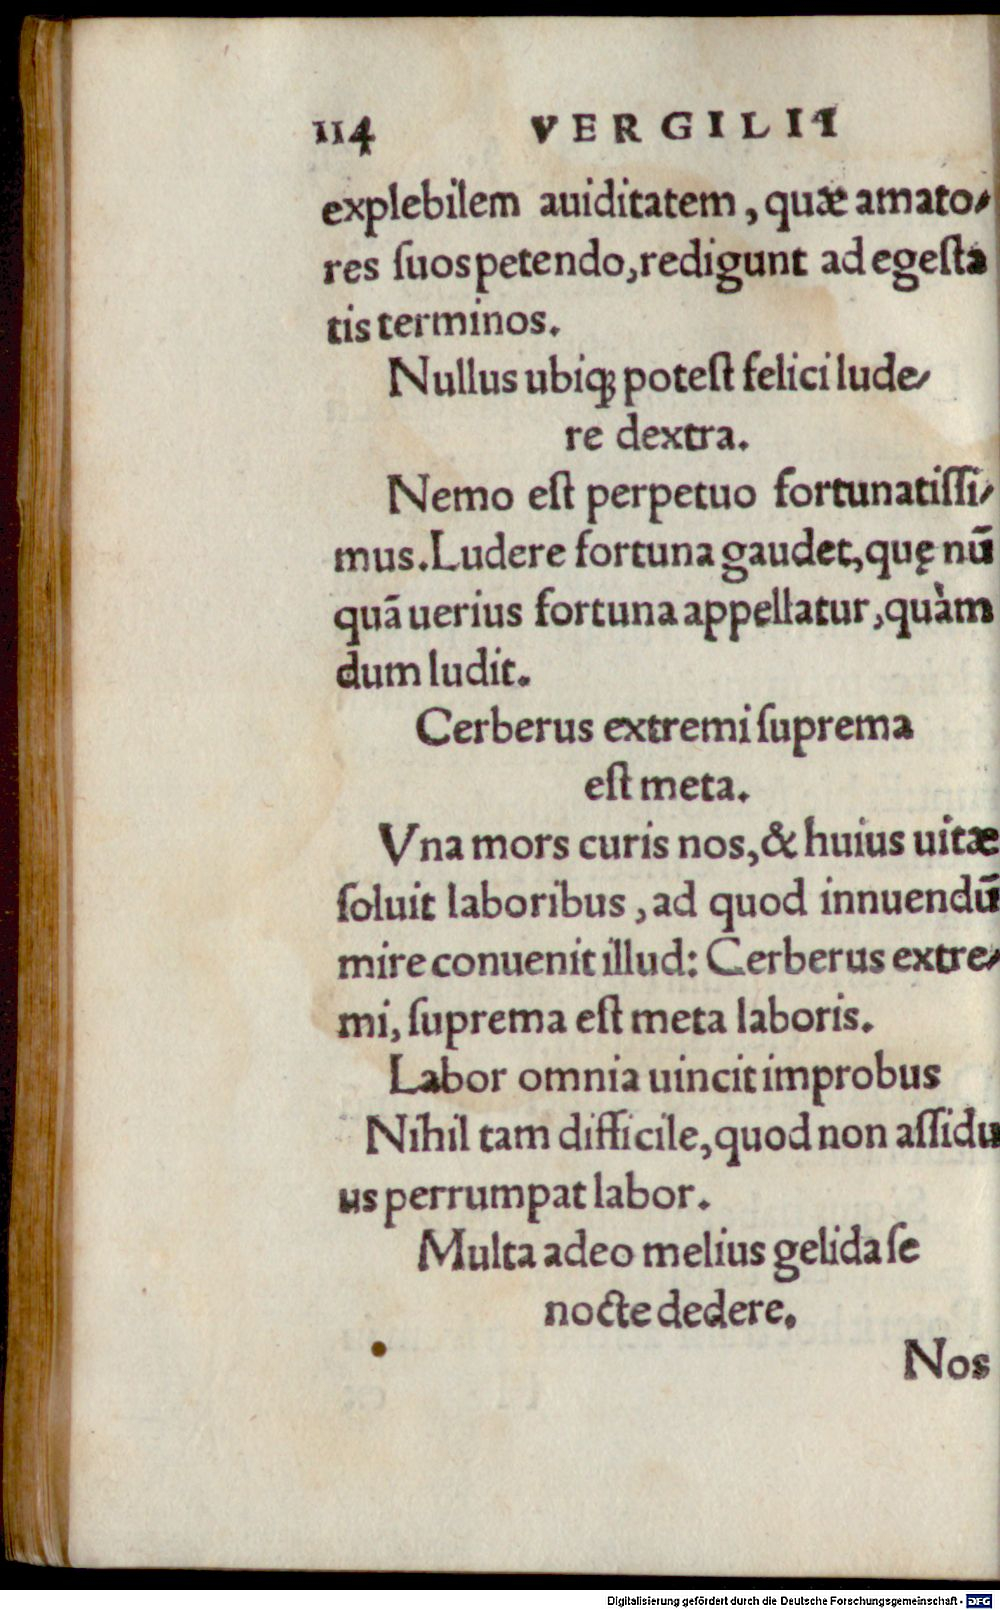 114 VERGILII
explebilem auiditatem, quæ amato-
res ſuos petendo, redigunt ad egeſta
tis terminos.
Nullus ubiqꝫ poteſt felici lude-
re dextra.
Nemo eſt perpetuo fortunatiſſi-
mus. Ludere fortuna gaudet, quę nū
quā uerius fortuna appellatur, quàm
dum ludit.
Cerberus extremi ſuprema
eſt meta.
Vna mors curis nos, & huius uitæ
ſoluit laboribus, ad quod innuendū
mire conuenit illud: Cerberus extre-
mi, ſuprema eſt meta laboris.
Labor omnia uincit improbus
Nihil tam difficile, quod non aſſidu
us perrumpat labor.
Multa adeo melius gelida ſe
nocte dedere.
Nos
Digitalisierung gefördert durch die Deutsche Forschungsgemeinschaft - DFG